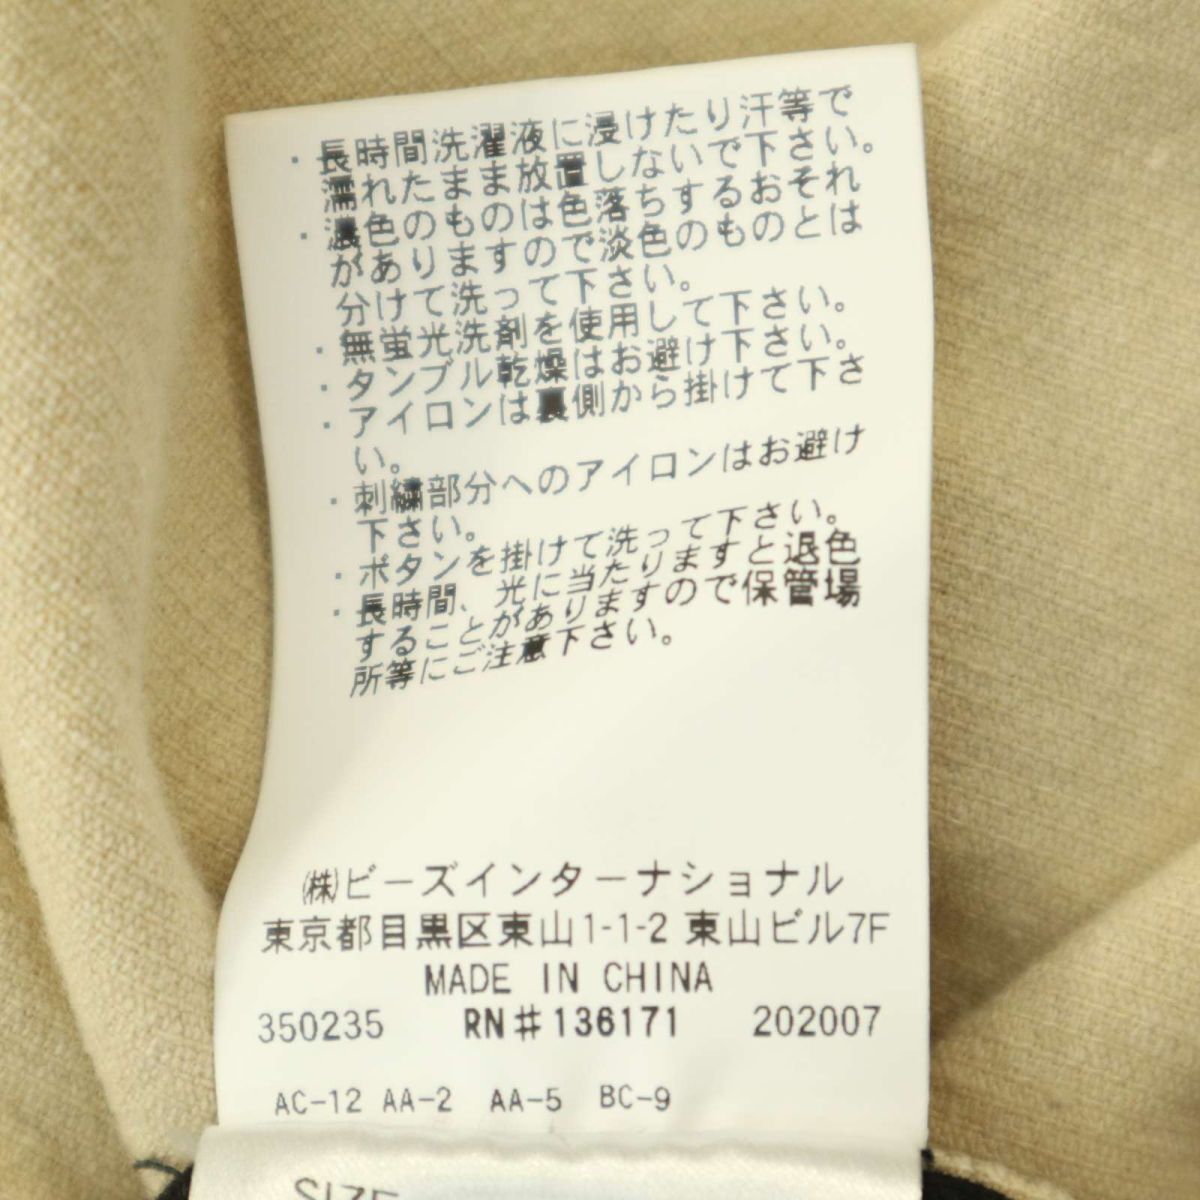 ・長時間洗濯液に浸けたり汗等で
濡れたまま放置しないで下さい。
・濃色のものは色落ちするおそれ
がありますので淡色のものとは
分けて洗って下さい。
・無蛍光洗剤を使用して下さい。
・タンブル乾燥はお避け下さい。
・アイロンは裏側から掛けて下さ
い。
・刺繍部分へのアイロンはお避け
下さい。
・ボタンを掛けて洗って下さい。
・長時間、光に当たりますと退色
することがありますので保管場
所等にご注意下さい。
(株)ビーズインターナショナル
東京都目黒区東山1-1-2 東山ビル7F
MADE IN CHINA
350235 RN#136171 202007
AC-12 AA-2 AA-5 BC-9
SIZE